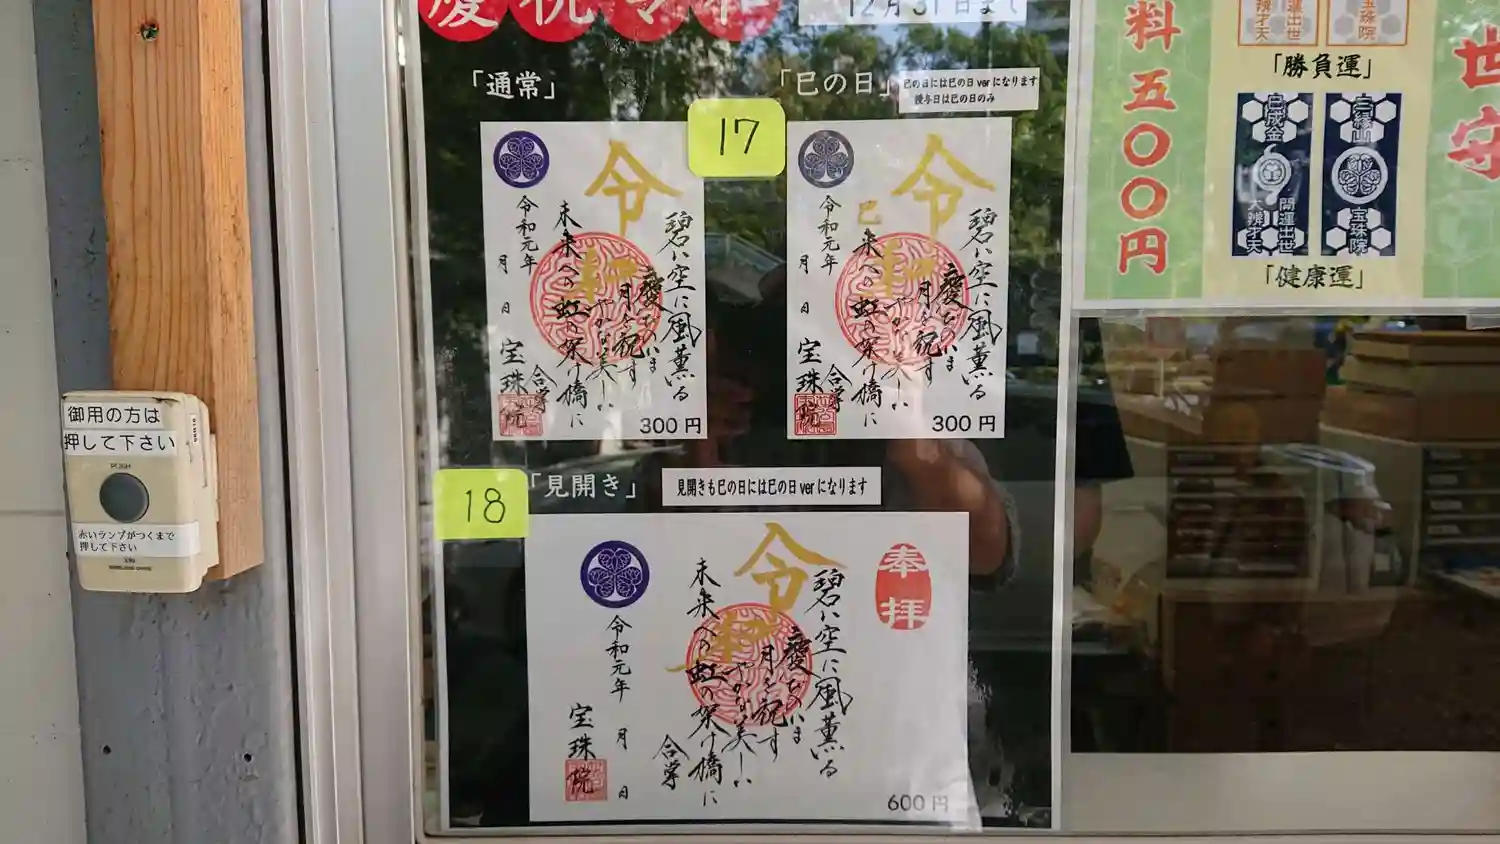 慶祝令和
12月31日まで
「通常」
「巳の日」
巳の日には巳の日verになります
授与日は巳の日のみ
17
令和
碧い空に風薫る
慶びのいま
月を祝す
やかな美しい
未来への虹の架け橋に
合掌
令和元年 月 日
宝珠院
300円
令和
巳
碧い空に風薫る
慶びのいま
月を祝す
やかな美しい
未来への虹の架け橋に
合掌
令和元年 月 日
宝珠院
300円
18
「見開き」
見開きも巳の日には巳の日verになります
奉拝
令和
碧い空に風薫る
慶びのいま
月を祝す
やかな美しい
未来への虹の架け橋に
合掌
令和元年 月 日
宝珠院
600円
御用の方は
押して下さい
PUSH
赤いランプがつくまで
押して下さい
料五〇〇円
開運出世
大辨才天
宝珠院
「勝負運」
巳成金
開運出世
大辨才天
三縁山
宝珠院
「健康運」
世
守